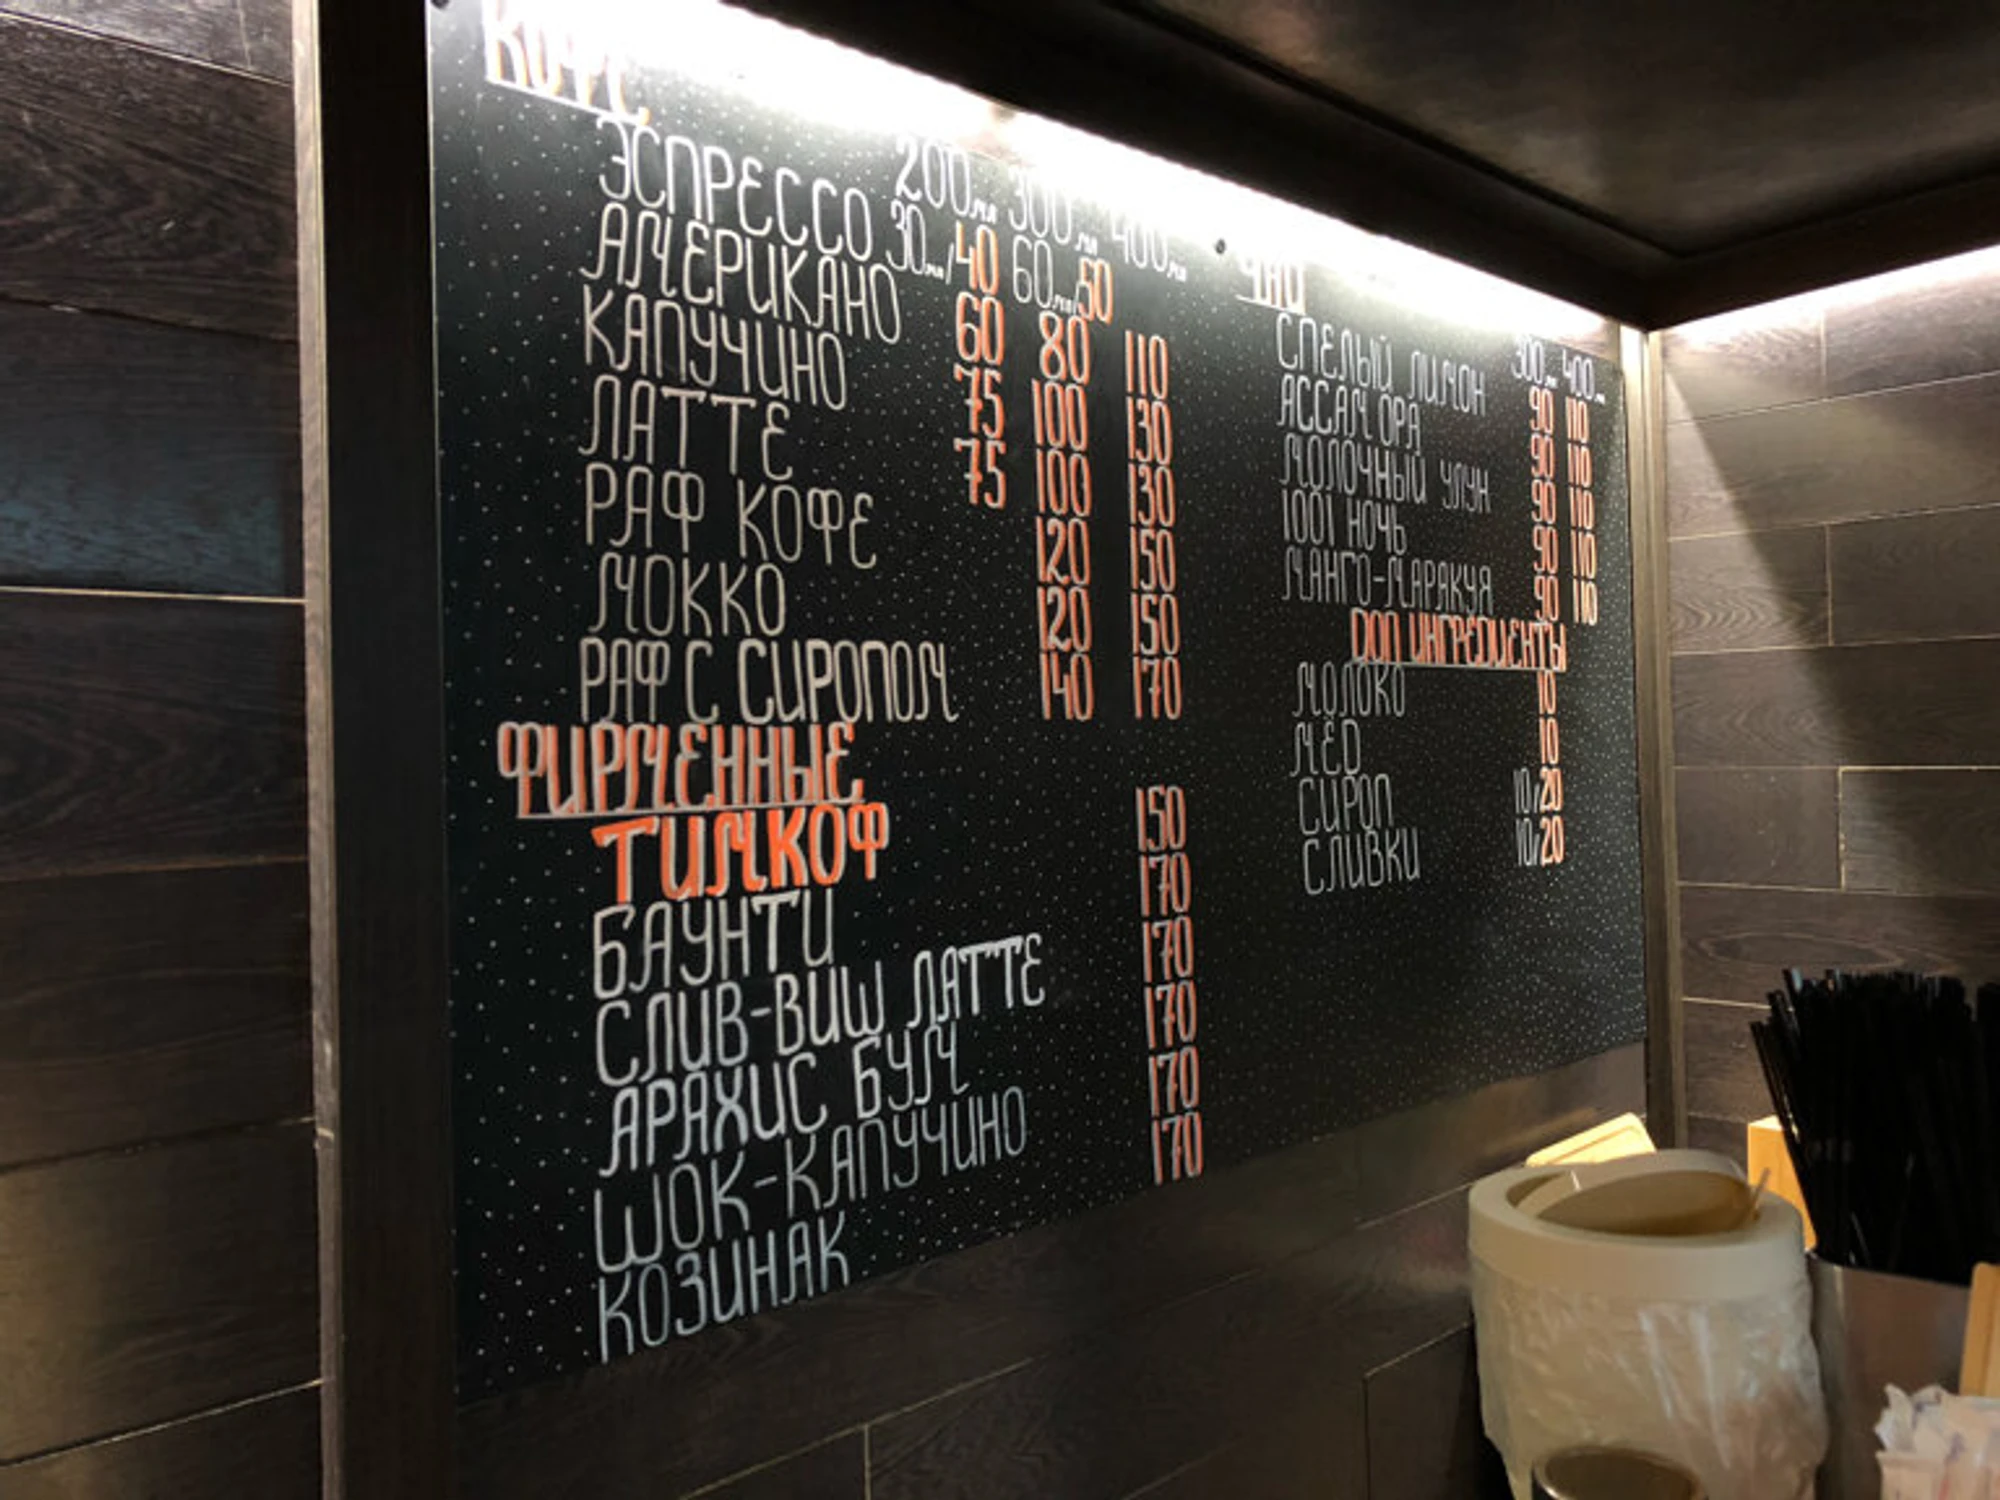 КОФЕ
200мл 300мл 400мл
ЭСПРЕССО 30мл/40 60мл/50
АМЕРИКАНО 60 80 110
КАПУЧИНО 75 100 130
ЛАТТЕ 75 100 130
РАФ КОФЕ 120 150
МОККО 120 150
РАФ С СИРОПОМ 140 170
ФИРМЕННЫЕ
ТИМКОФ 150
БАУНТИ 170
СЛИВ-ВИШ ЛАТТЕ 170
АРАХИС БУМ 170
ШОК-КАПУЧИНО 170
КОЗИНАК 170
ЧАЙ
300мл 400мл
СПЕЛЫЙ ЛИМОН 90 110
АССАМ ОРА 90 110
МОЛОЧНЫЙ УЛУН 90 110
1001 НОЧЬ 90 110
МАНГО-МАРАКУЯ 90 110
ДОП ИНГРЕДИЕНТЫ
МОЛОКО 10
МЁД 10
СИРОП 10/20
СЛИВКИ 10/20